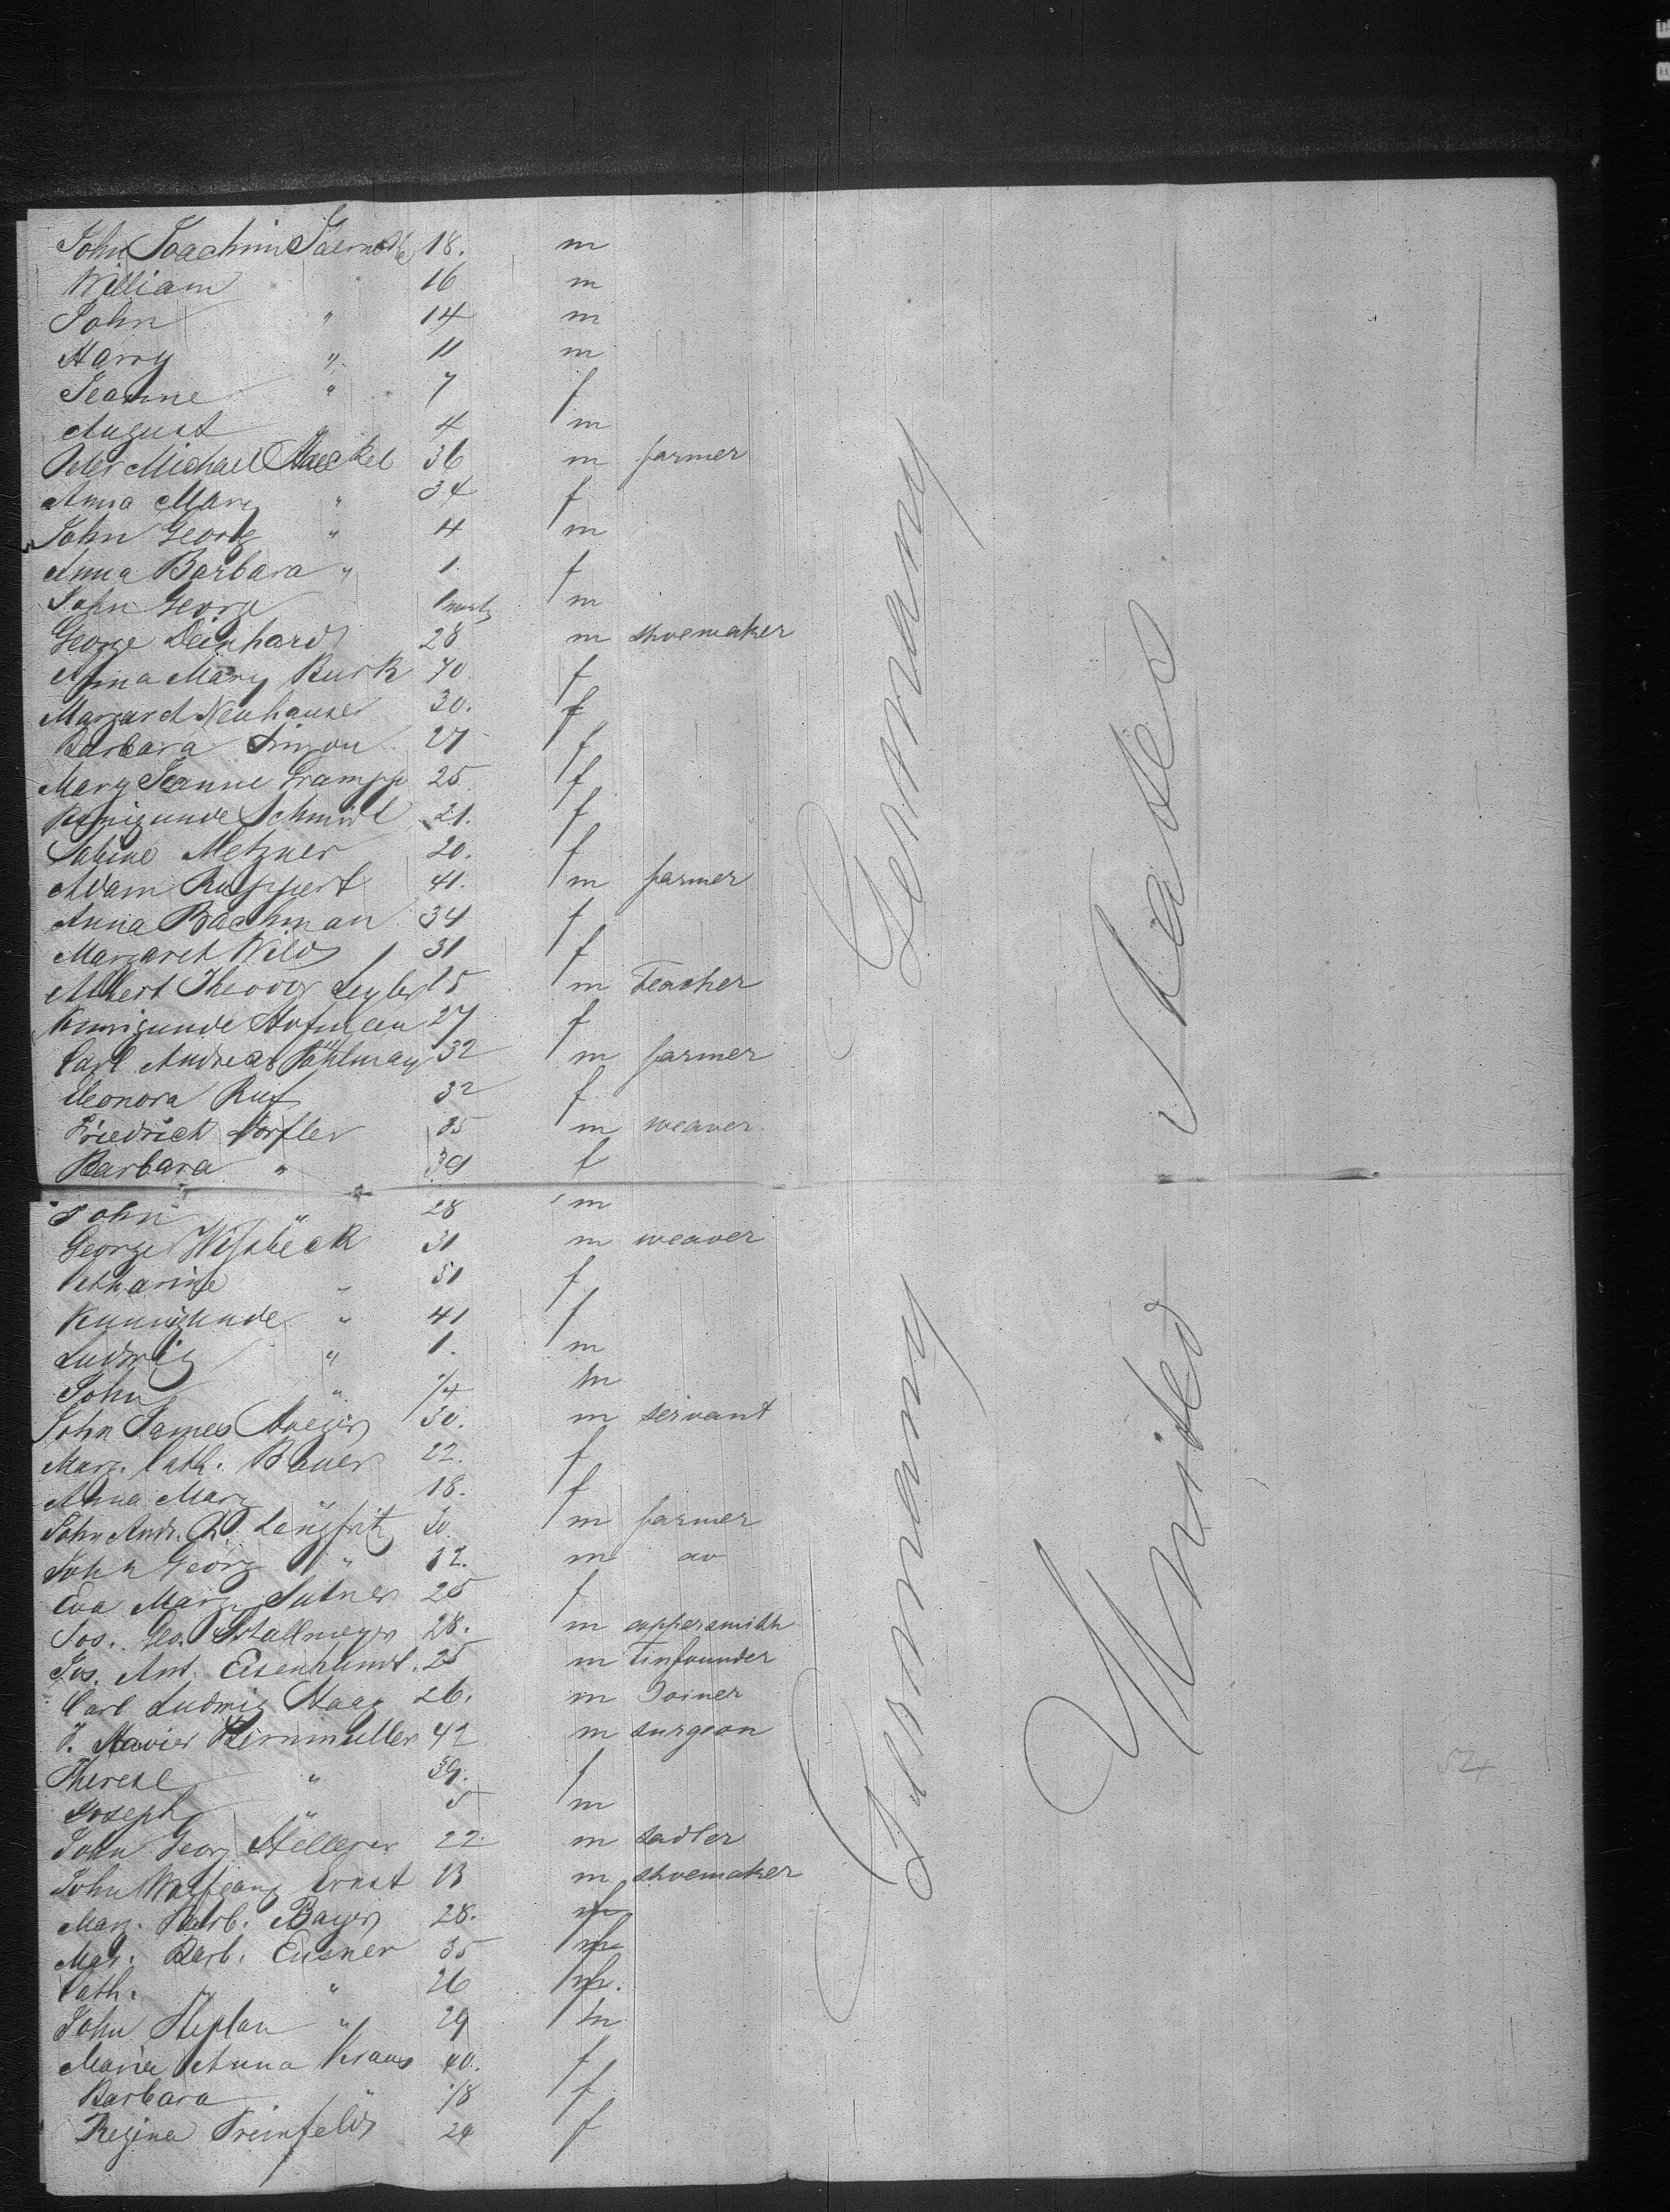 John Joachim 18. m
William " 16 m
John " 14 m
Harry " 11 m
Jeanne " 7 f
August " 4 m
Peter Michael 36 m farmer
Anna Mary " 34 f
John Georg " 4 m
Anna Barbara " 1. f
John George 1 month m
George Deinhard 28 m shoemaker
Anna Mary Burk 40 f
Margaret Neuhauser 30. f
Barbara Simon 27 f
Mary Jeanne Grampp 25 f
Kunigunde Schmidt 21. f
Sabine Metzner 20. f
Adam Ruppert 41. m farmer
Anna Bachman 34 f
Margaret Wild 31 f
Albert Theodor 15 m Teacher
Kunigunde Hofman 27 f
Carl Andreas Pöhlman 32 m farmer
Eleonora Ruf 32 f
Friedrich Dorfler 35 m weaver
Barbara " 39 f
John " 28 m
George 31 m weaver
Catharine " 31 f
Kunnigunde " 41 f
Ludwig " 1. m
John " 1/4 m
John James 30. m servant
Marg. Cath. Bauer 22. f
Anna Mary 18. f
John Andr. Längfritz 30 m farmer
John Georg " 32. m do
Eva Marg. 25 f
Jos. Geo. Stallmeyer 28. m coppersmith
Jos. Ant. 25 m Tinfounder
Carl Ludwig Haag 26. m Joiner
42 m surgeon
Therese " 39. f
Joseph " 5 m
John Georg 22 m sadler
John Wolfgang Ernst 13 m shoemaker
Marg. Barb. Bayer 28. f
Mar. Barb. Eusner 35 f
Cath. " 26 f.
John Steplan " 29 m
Maria Anna Kraus 40. f
Barbara " 18 f
Regina 29 f
Germany Germany
United States
54